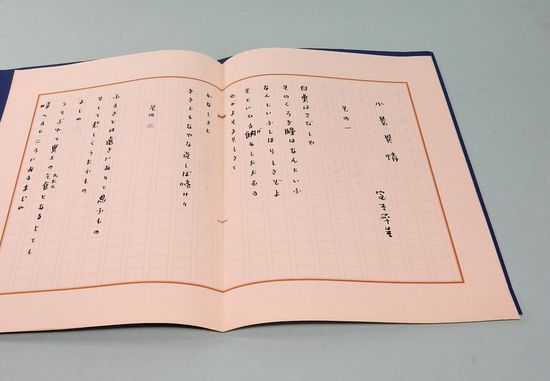 小景異情
室生犀星
その一
白魚はさびしや
そのくろき瞳はなんといふ
なんといふしほらしさぞよ
そとにひる餉をしたたむる
わがよそよそしさと
かなしさと
ききともなやな雀しば啼けり
その二
ふるさとは遠きにありて思ふもの
そして悲しくうたふもの
よしや
うらぶれて異土の乞食となるとても
帰へるところにあるまじや